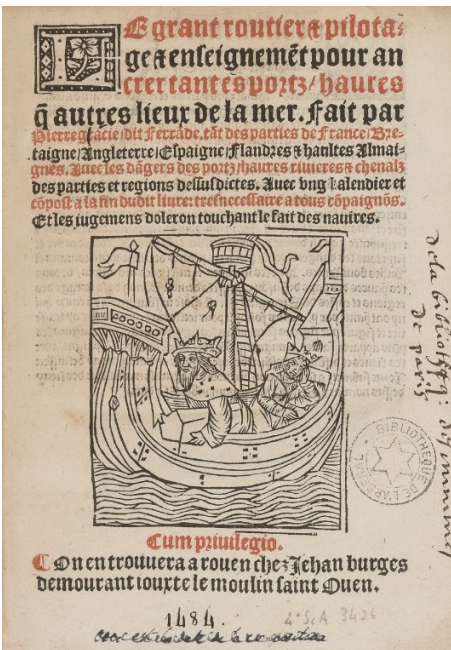 LE grant routier ⁊ pilota⸗
ge ⁊ enseignemẽt pour an
crer tant es portz/ haures
q̃ autres lieux de la mer. Fait par
Pierre gracie/dit ferrãde. tãt des parties de france/Bre⸗
taigne/Angleterre/Espaigne/Flandres ⁊ haultes Almai⸗
gnes. Auec les dãgers des portz/haures riuieres ⁊ chenalz
des parties et regions dessusdictes. Auec vng kalendier et
cõpost a la fin dudit liure: tresnecessaire a tous cõpaignõs.
Et les iugemens doleron touchant le fait des nauires.
de la biblioth
de paris
BIBLIOTHEQUE DE L'ARSENAL
Cum priuilegio.
On en trouuera a rouen chez Jehan burges
demourant iouxte le moulin saint Ouen.
1484.
4° S.A 3426